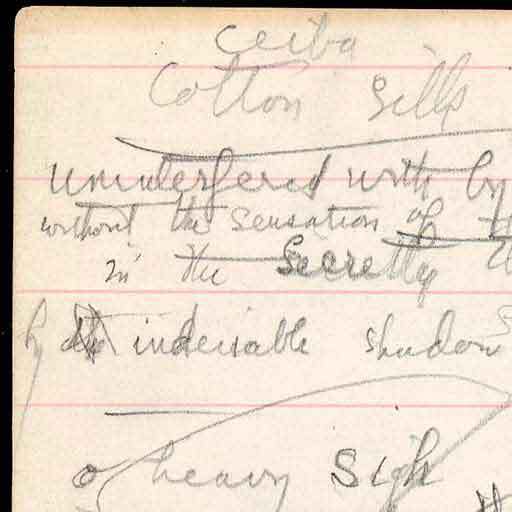 Ceiba
Cotton Sills
uninterfered with by
without the sensation of
in the Secretly
by the indeniable shadow
heavy Sigh